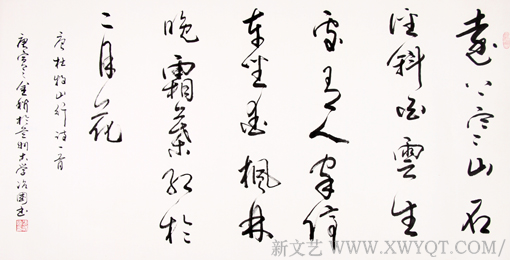 遠上寒山石
徑斜白雲生
處有人家停
車坐愛楓林
晚霜葉紅於
二月花
唐杜牧山行詩一首
庚寅之金秋於昆明大学治國书
新文艺 WWW.XWYQT.COM